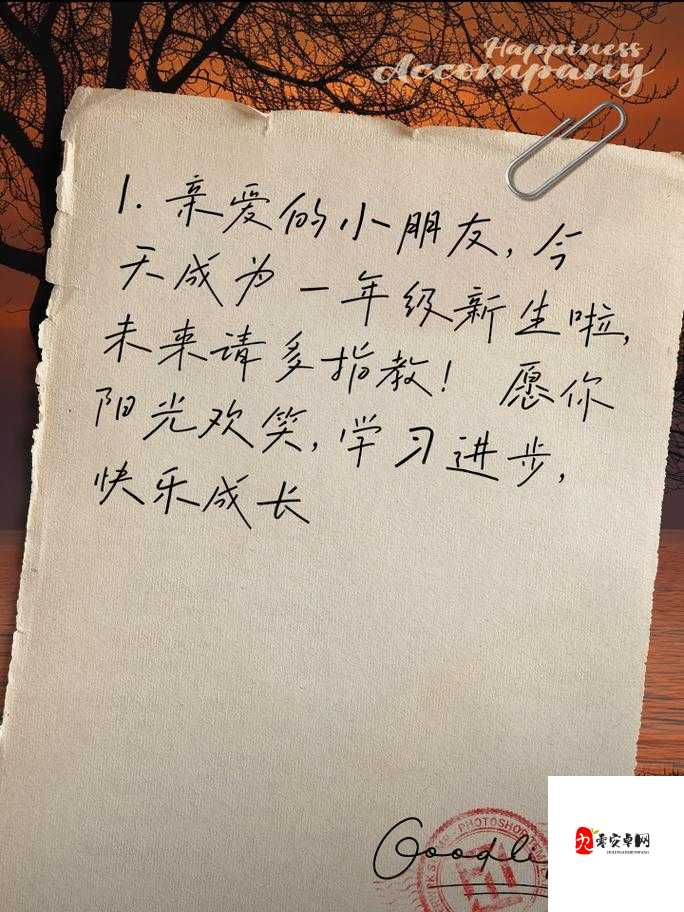 Happiness
Accompany
1. 亲爱的小朋友,今
天成为一年级新生啦,
未来请多指教! 愿你
阳光欢笑,学习进步,
快乐成长
PHOTOSHOP
零安卓网